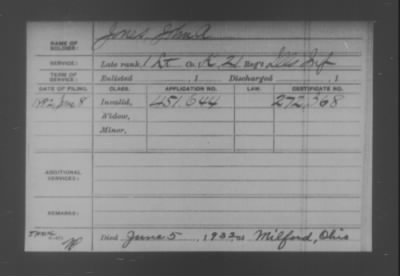 Jones, John A
NAME OF SOLDIER:
SERVICE: Late rank, 1 Lt Co. K, 21 Reg't Ills Inf
TERM OF SERVICE: Enlisted , 1 Discharged , 1
DATE OF FILING. CLASS. APPLICATION NO. LAW. CERTIFICATE NO.
1892 June 8 Invalid, 451.644 272,368
Widow,
Minor,
ADDITIONAL SERVICES:
REMARKS:
Died June 5, 1922 at Milford, Ohio